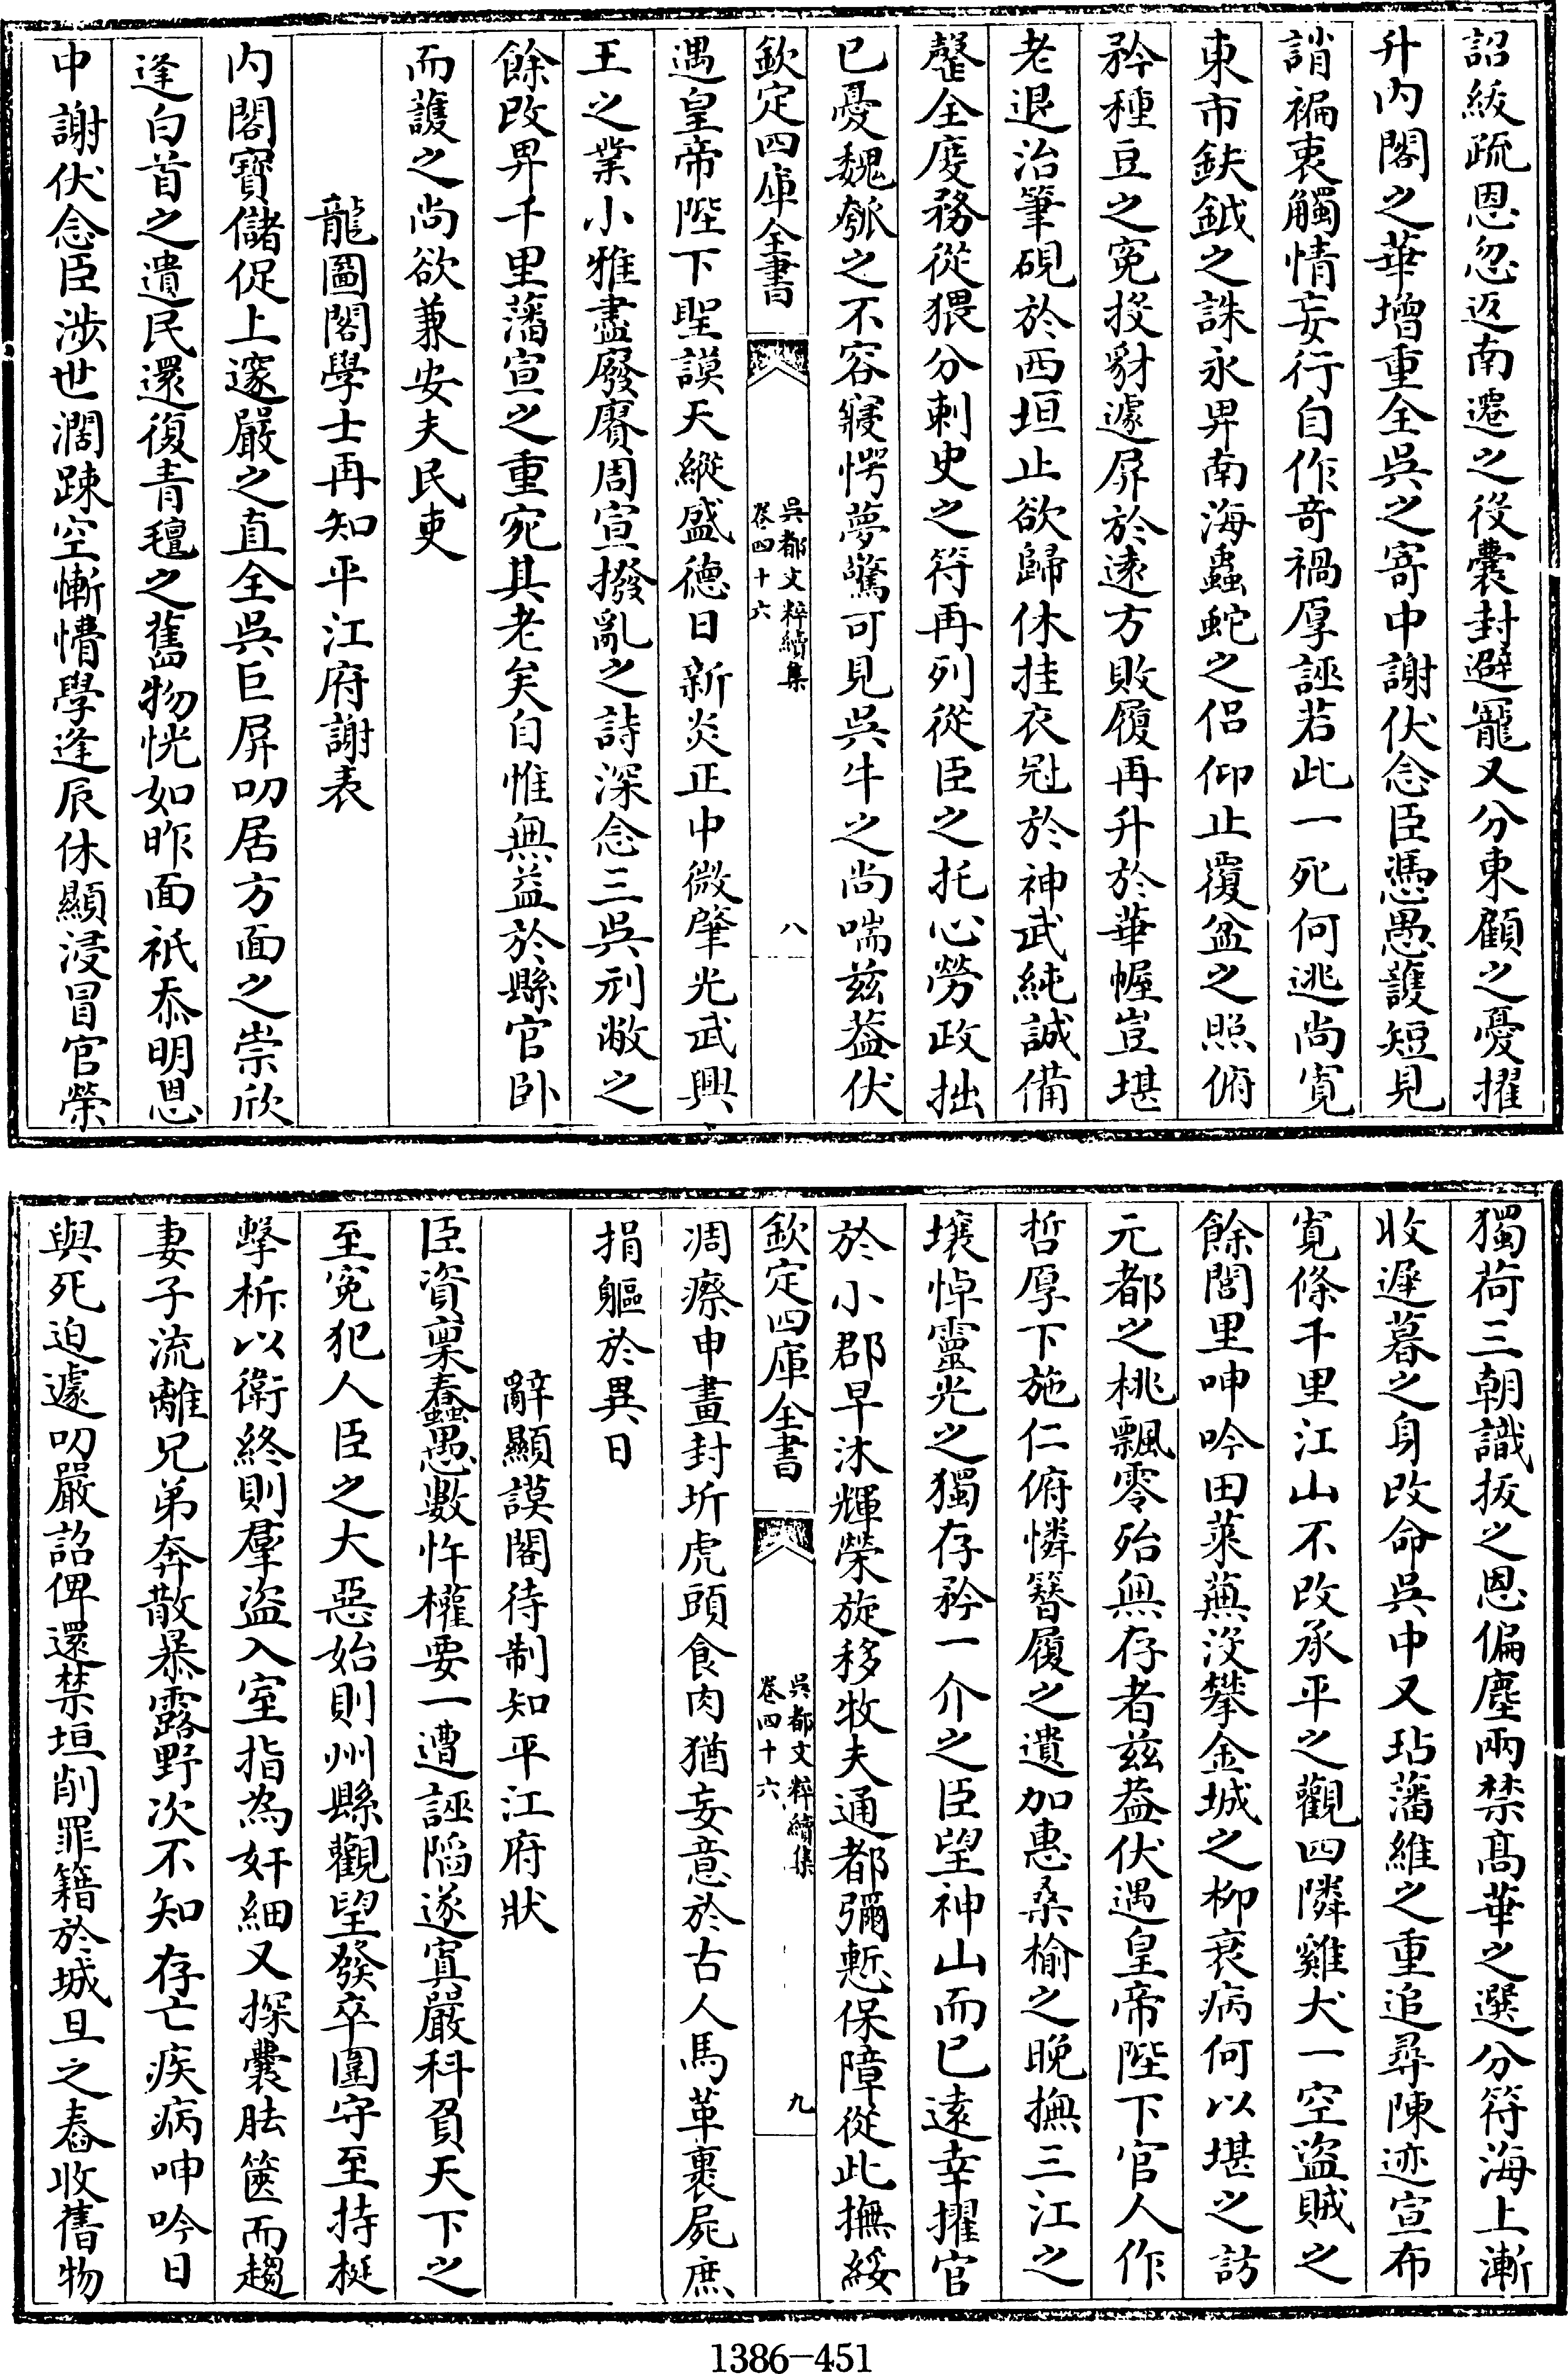 詔綍疏恩忽返南遷之役囊封避寵又分東顧之憂擢
升内閣之華增重全吳之寄中謝伏念臣憑愚護短見
誚褊衷觸情妄行自作奇禍厚誣若此一死何逃尚寛
東市鈇鉞之誅永畀南海蟲蛇之侣仰止覆盆之照俯
矜種豆之寃投豺遽屏於逺方敗履再升於華幄豈堪
老退治筆硯於西垣止欲歸休挂衣冠於神武純誠備
罄全度務從猥分刺史之符再列從臣之托心勞政拙
已憂魏瓠之不容寢愕夢驚可見吳牛之尚喘兹葢伏
欽定四庫全書
吳都文粹續集
卷四十六
八
遇皇帝陛下聖謨天縱盛德日新炎正中微肇光武興
王之業小雅盡廢賡周宣撥亂之詩深念三吳刓敝之
餘改畀千里藩宣之重宛其老矣自惟無益於縣官卧
而護之尚欲兼安夫民吏
龍圖閣學士再知平江府謝表
内閣寳儲促上邃嚴之直全吳巨屏叨居方面之崇欣
逢白首之遺民還復青氊之舊物恍如昨面祇忝明恩
中謝伏念臣涉世濶踈空慚懵學逢辰休顯浸冒官榮
獨荷三朝識拔之恩偏塵兩禁髙華之選分符海上漸
收遲暮之身改命吳中又玷藩維之重追尋陳迹宣布
寛條千里江山不改承平之觀四隣雞犬一空盜賊之
餘閭里呻吟田萊蕪沒攀金城之柳衰病何以堪之訪
元都之桃飄零殆無存者兹葢伏遇皇帝陛下官人作
哲厚下施仁俯憐簪履之遺加惠桑榆之晚撫三江之
壤悼靈光之獨存矜一介之臣望神山而已逺幸擢官
於小郡早沐輝榮旋移牧夫通都彌慙保障從此撫綏
欽定四庫全書
吳都文粹續集
卷四十六
九
凋瘵申畫封圻虎頭食肉猶妄意於古人馬革裹屍庶
捐軀於異日
辭顯謨閣待制知平江府狀
臣資稟惷愚數忤權要一遭誣陷遂寘嚴科負天下之
至寃犯人臣之大惡始則州縣觀望發卒圍守至持梃
擊柝以衛終則羣盜入室指為奸細又探囊胠篋而趨
妻子流離兄弟奔散暴露野次不知存亡疾病呻吟日
與死迫遽叨嚴詔俾還禁垣削罪籍於城旦之舂收舊物
1386-451